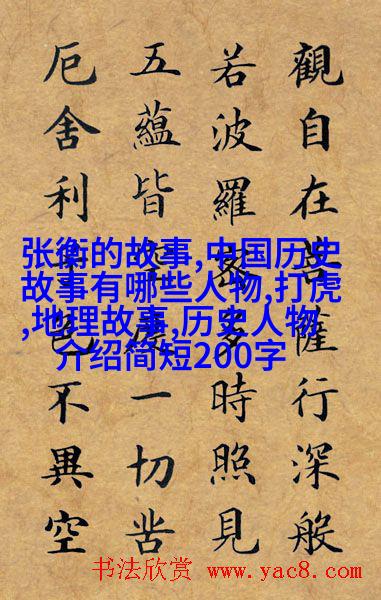 觀自在菩薩行深般
若波羅蜜多時照見
五蘊皆空度一切苦
厄舍利子色不異空
张衡的故事,中国历史
故事有哪些人物,打虎
,地理故事,历史人物
介绍简短200字
书法欣赏 www.yac8.com